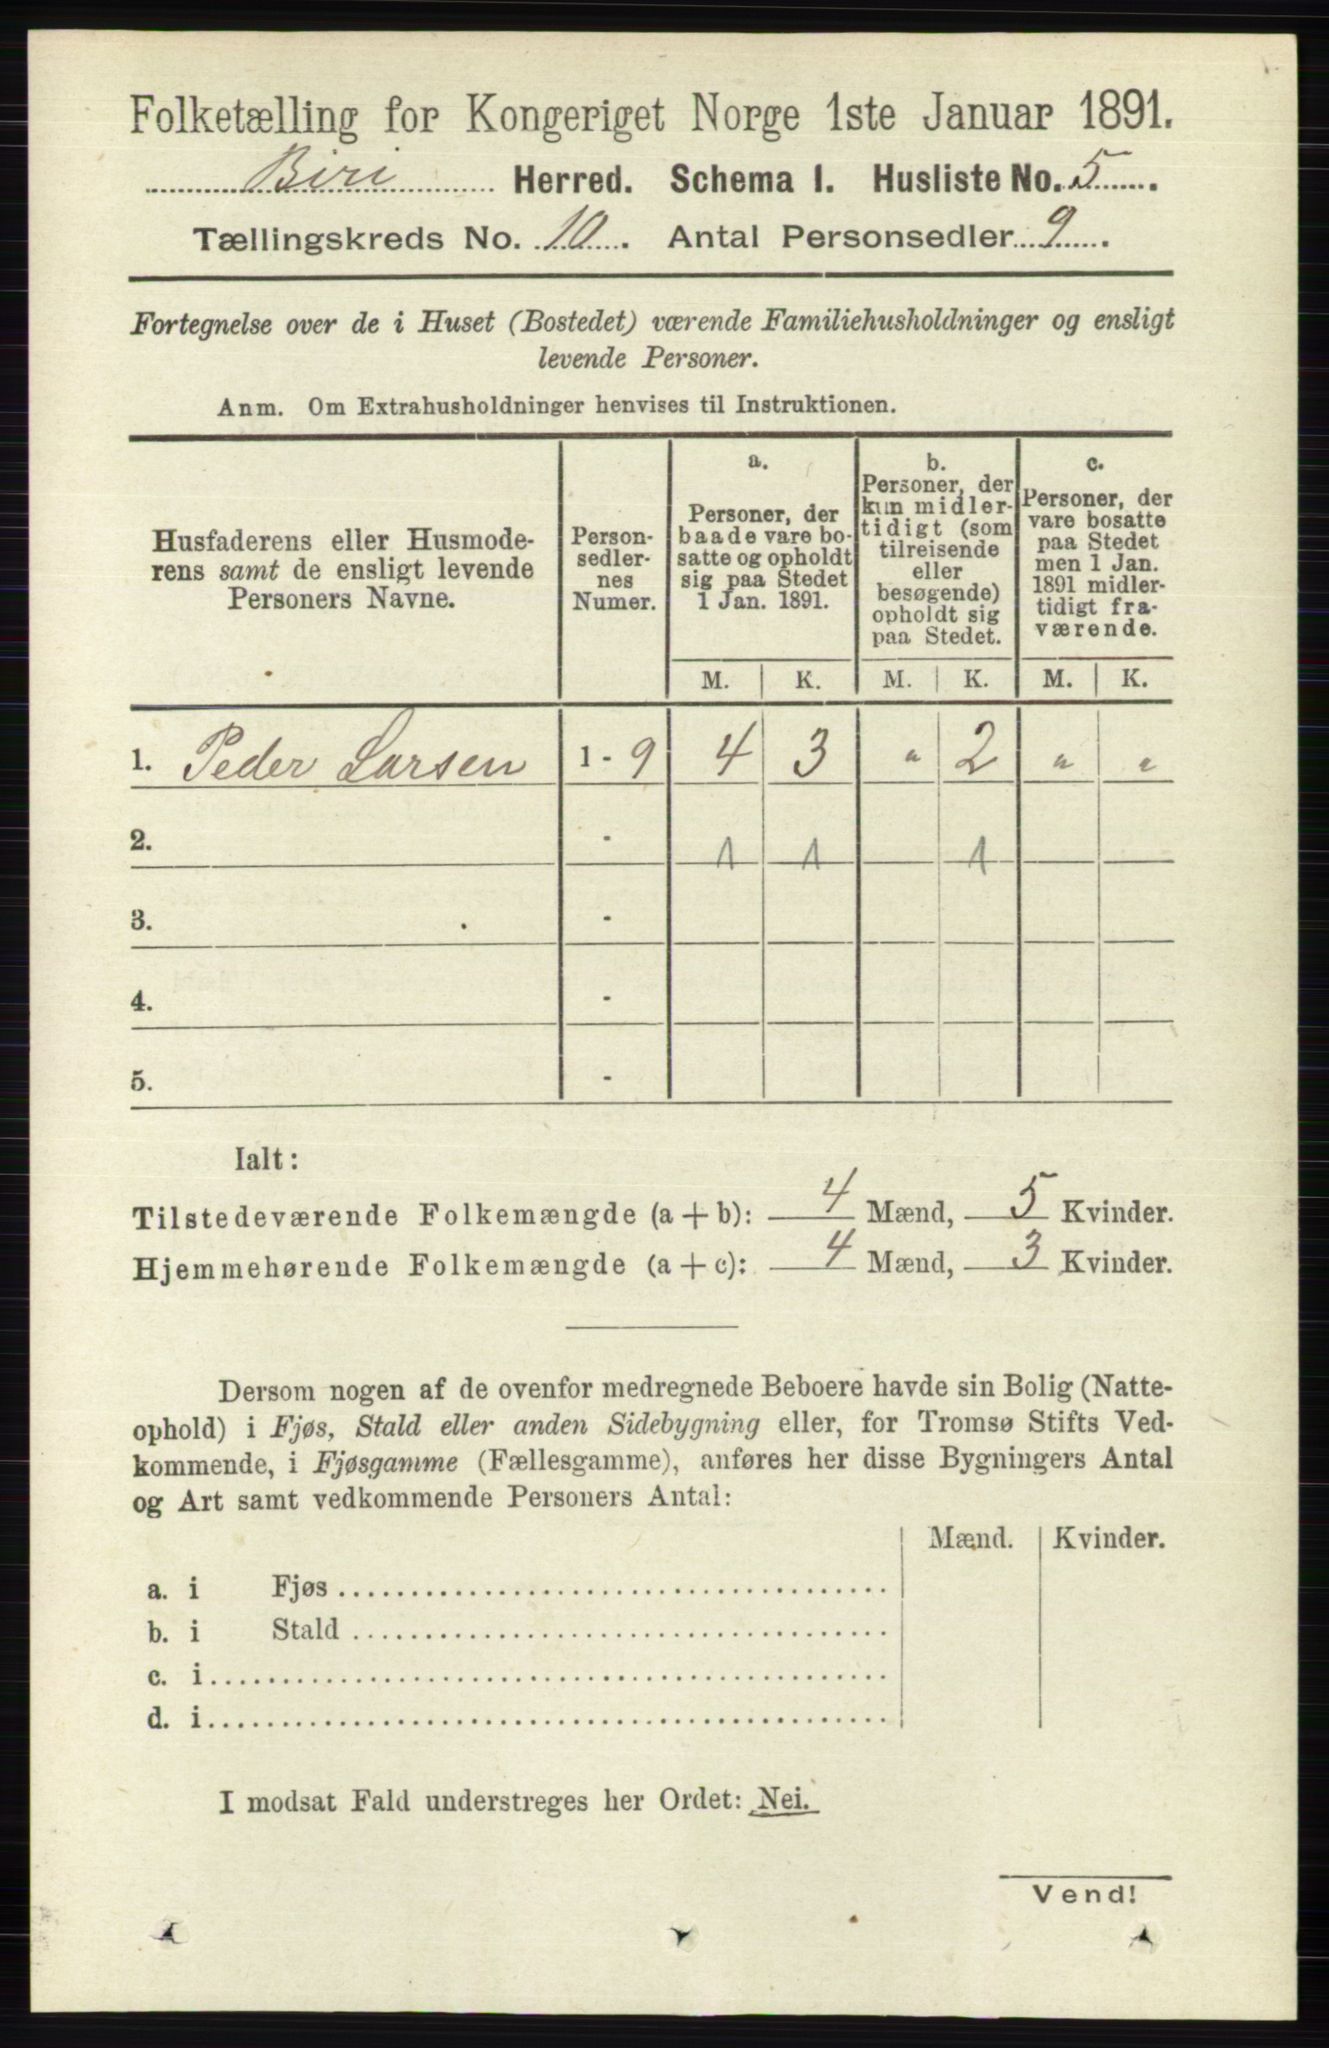 Folketælling for Kongeriget Norge 1ste Januar 1891.
Biri Herred. Schema I. Husliste No. 5
Tællingskreds No. 10. Antal Personsedler 9
Fortegnelse over de i Huset (Bostedet) værende Familiehusholdninger og ensligt
levende Personer.
Anm. Om Extrahusholdninger henvises til Instruktionen.
Husfaderens eller Husmode-
rens samt de ensligt levende
Personers Navne.
Person-
sedler-
nes
Numer.
a.
Personer, der
baade vare bo-
satte og opholdt
sig paa Stedet
1 Jan. 1891.
b.
Personer, der
kun midler-
tidigt (som
tilreisende
eller
besøgende)
opholdt sig
paa Stedet.
c.
Personer, der
vare bosatte
paa Stedet
men 1 Jan.
1891 midler-
tidigt fra-
værende.
M. K. M. K. M. K.
1. Peder Larsen 1 - 9 4 3 " 2 " "
2. - 1 1 1
3. -
4. -
5. -
Ialt:
Tilstedeværende Folkemængde (a + b): 4 Mænd, 5 Kvinder.
Hjemmehørende Folkemængde (a + c): 4 Mænd, 3 Kvinder.
Dersom nogen af de ovenfor medregnede Beboere havde sin Bolig (Natte-
ophold) i Fjøs, Stald eller anden Sidebygning eller, for Tromsø Stifts Ved-
kommende, i Fjøsgamme (Fællesgamme), anføres her disse Bygningers Antal
og Art samt vedkommende Personers Antal:
Mænd. Kvinder.
a. i Fjøs
b. i Stald
c. i
d. i
I modsat Fald understreges her Ordet: Nei.
Vend!